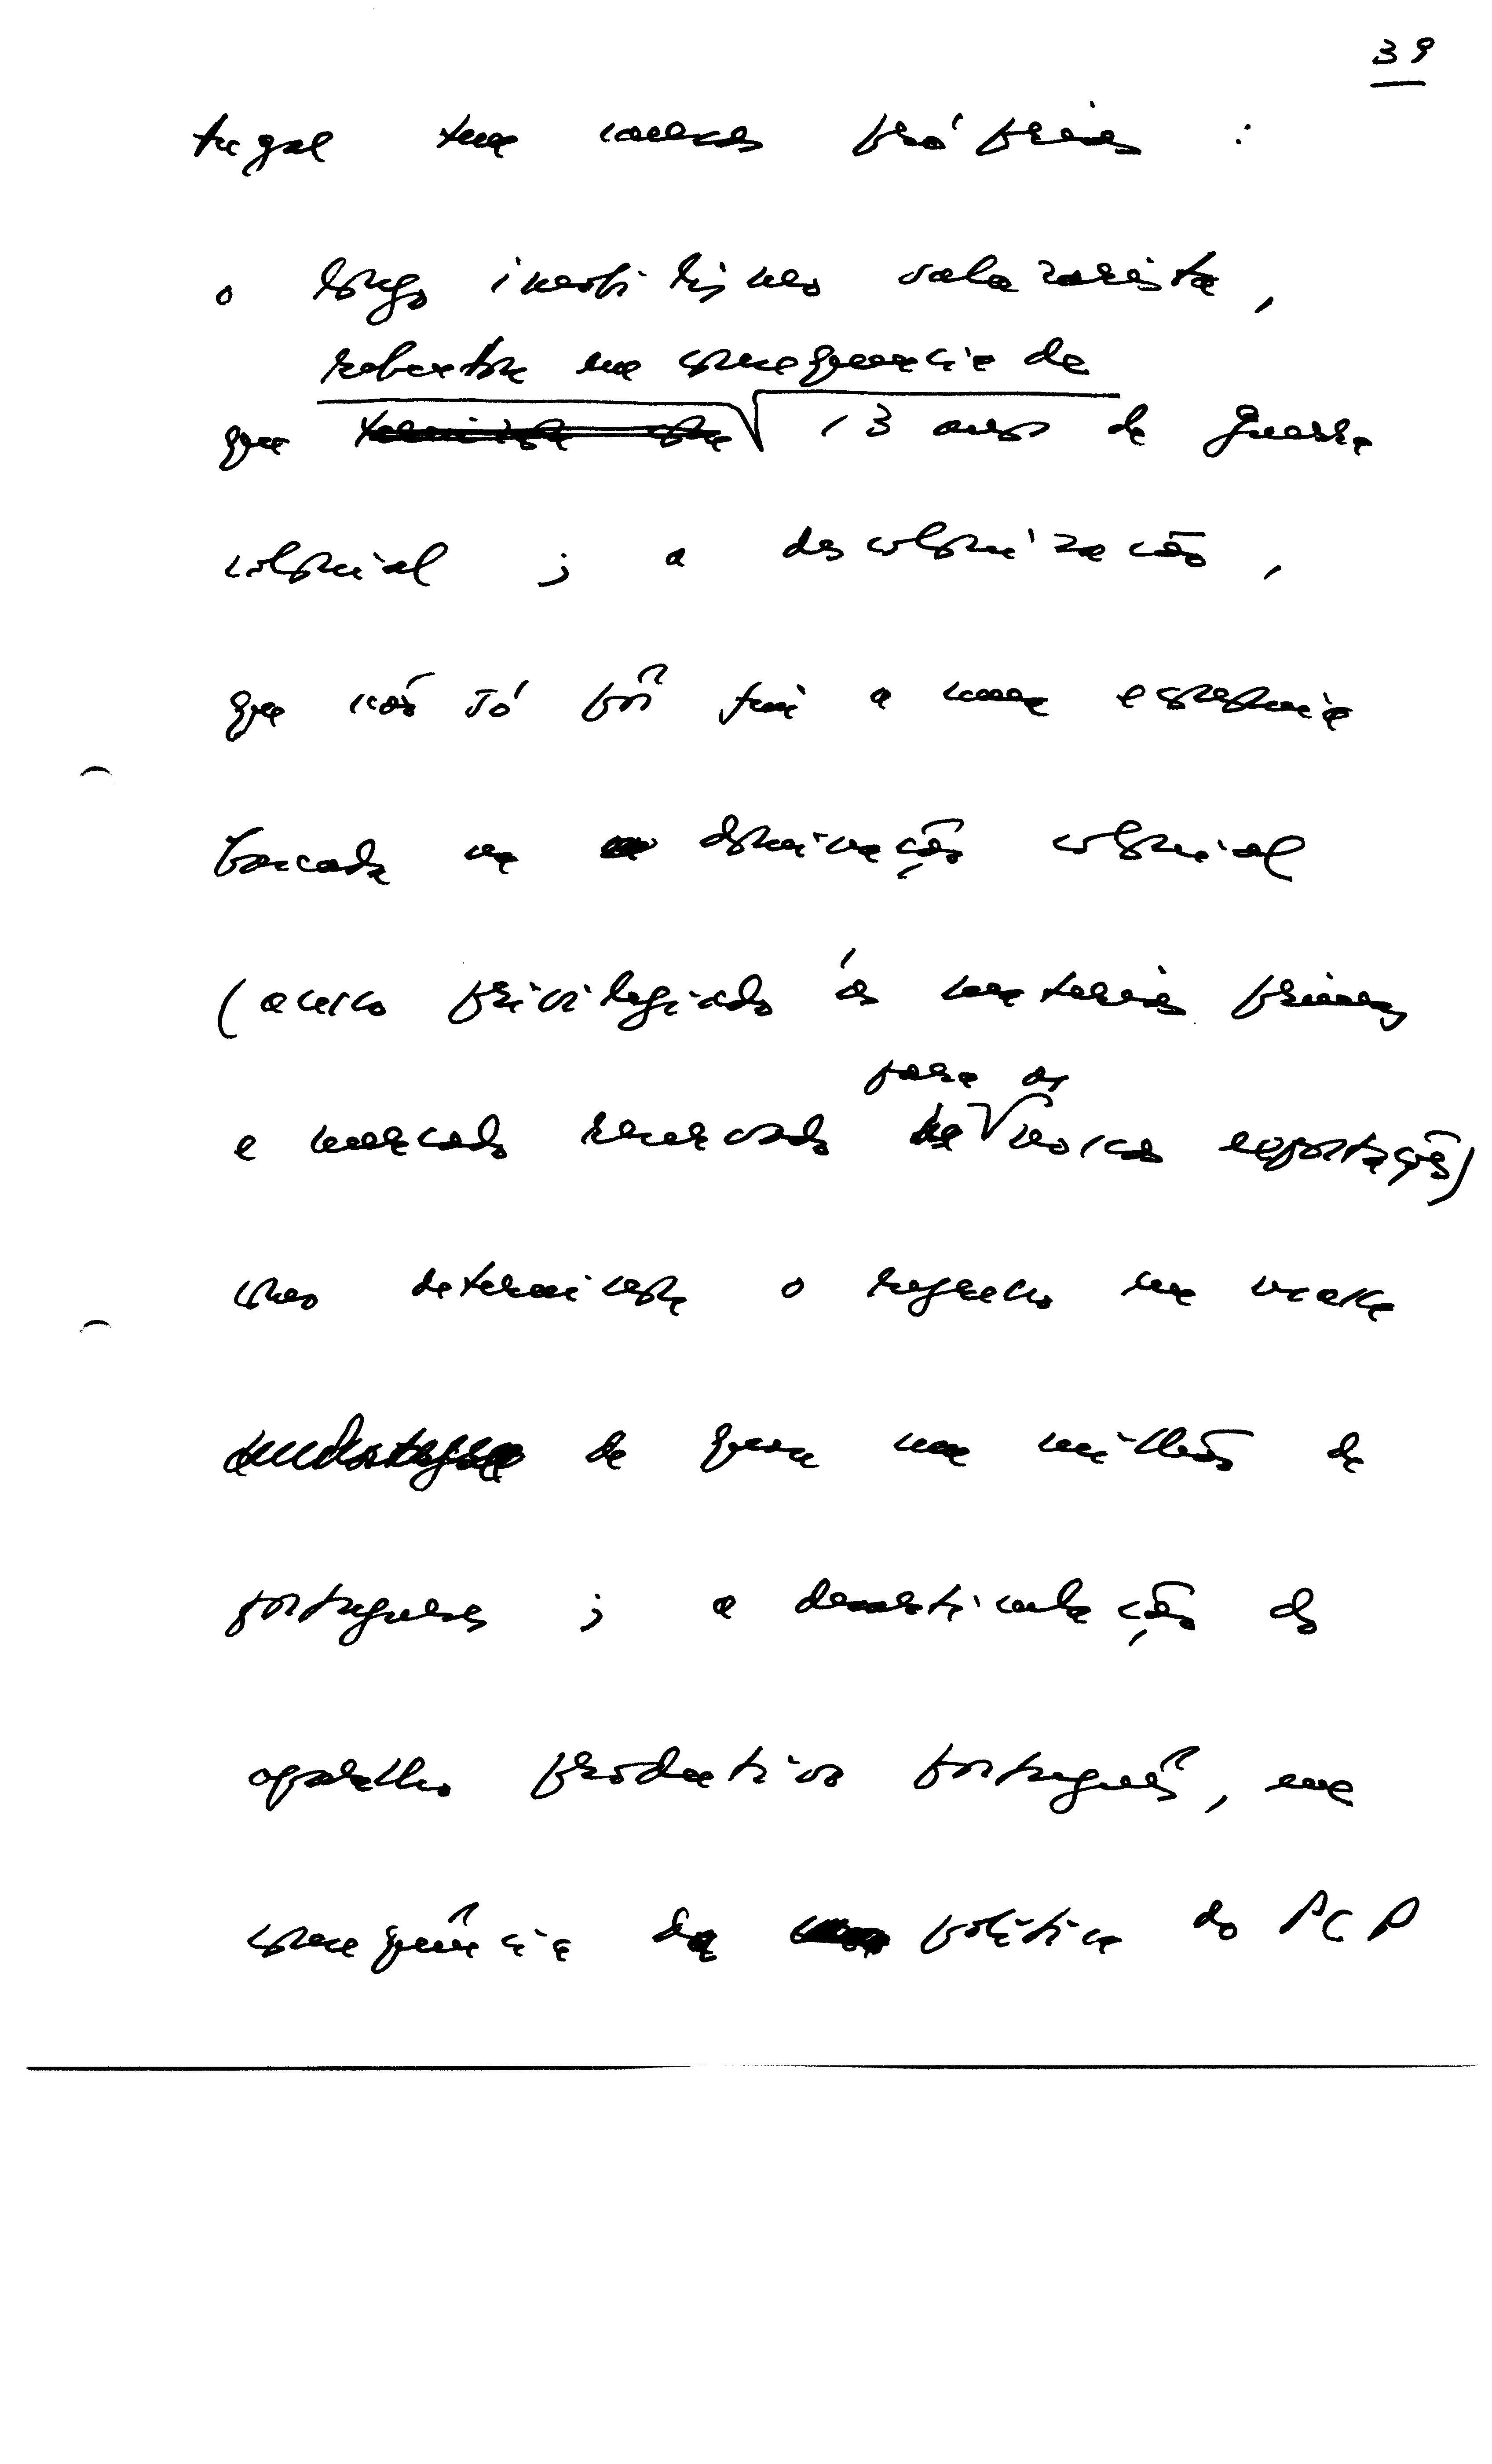 39
tugal tem causas próprias :
o longo imobilismo salazarista,
rebentou em consequência de
que 13 anos de guerra
colonial ; a descolonização,
que não só pôs fim a uma economia
baseada na dominação colonial
(acesso privilegiado às matérias primas
para as
e mercado reservado nossas exportações)
como determinou o regresso em massa
de quase um milhão de
portugueses ; a desarticulação do
aparelho produtivo português, em
consequência da política do PCP